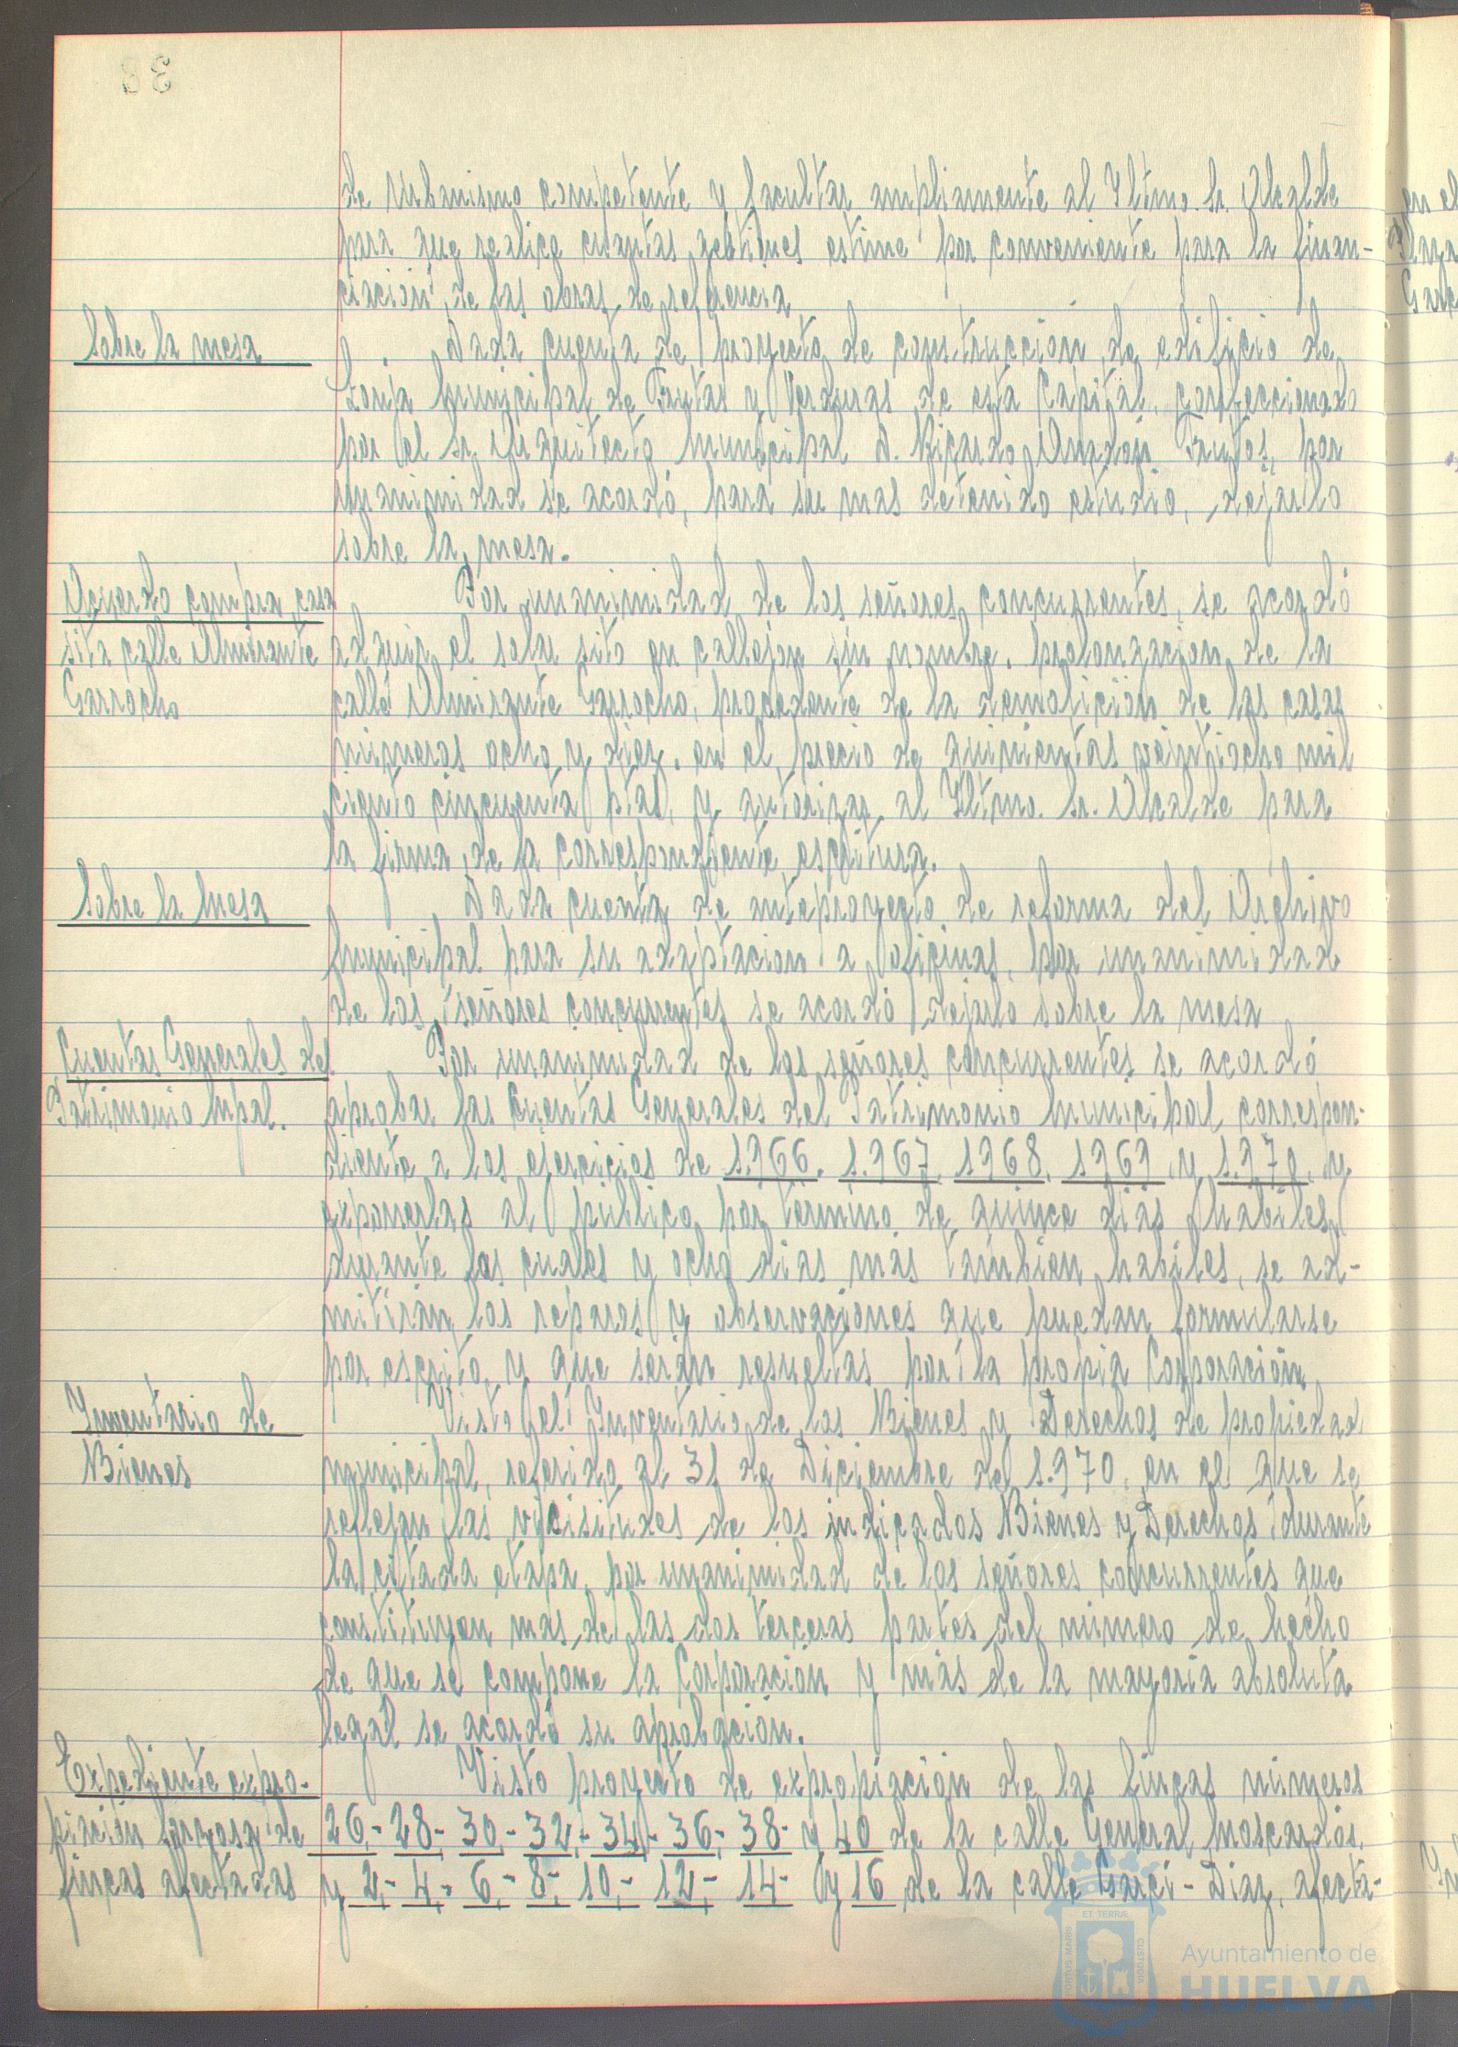 38
de Urbanismo competente y facultar ampliamente al Iltmo. Sr. Alcalde
para que realice cuantas gestiones estime por conveniente para la finan-
ciación de las obras de referencia
Sobre la mesa
Dada cuenta del proyecto de construcción de edificio de
Lonja Municipal de Frutas y Verduras de esta Capital, confeccionado
por el Sr. Arquitecto Municipal D. Ricardo Anadón Frutos, por
unanimidad se acordó, para su mas detenido estudio, dejarlo
sobre la mesa.
Acuerdo compra casa
sita calle Almirante
Garrocho
Por unanimidad de los señores concurrentes, se acordó
adquirir el solar sito en callejon sin nombre, prolongacion de la
calle Almirante Garrocho, procedente de la demolición de las casas
números ocho y diez, en el precio de quinientas veintiocho mil
ciento cincuenta ptas, y autorizar al Iltmo. Sr. Alcalde para
la firma de la correspondiente escritura.
Sobre la Mesa
Dada cuenta de anteproyecto de reforma del Archivo
Municipal para su adaptacion a oficinas, por unanimidad
de los señores concurrentes se acordó dejarlo sobre la mesa
Cuentas Generales del
Patrimonio Mpal.
Por unanimidad de los señores concurrentes se acordó
aprobar las Cuentas Generales del Patrimonio Municipal correspon-
diente a los ejercicios de 1.966, 1.967, 1968, 1969 y 1.970, y
exponerlas al público por termino de quince dias habiles,
durante los cuales y ocho dias más tambien habiles, se ad-
mitirán los reparos y observaciones que puedan formularse
por escrito y que serán resueltas por la propia Corporación
Inventario de
Bienes
Visto el Inventario de los Bienes y Derechos de propiedad
municipal, referido al 31 de Diciembre de 1.970, en el que se
reflejan las vicisitudes de los indicados Bienes y Derechos durante
la citada etapa, por unanimidad de los señores concurrentes que
constituyen más de las dos terceras partes del número de hecho
de que se compone la Corporación y más de la mayoria absoluta
legal se acordó su aprobación.
Expediente expro-
piación forzosa de
fincas afectadas
Visto proyecto de expropiación de las fincas números
26,- 28,- 30,- 32,- 34,- 36,- 38- y 40 de la calle General Moscardós,
y 2,- 4,- 6,- 8,- 10,- 12,- 14- y 16 de la calle Garci-Diaz, afecta-
PORTUS MARIS
ET TERRÆ
CUSTODIA
Ayuntamiento de
HUELVA